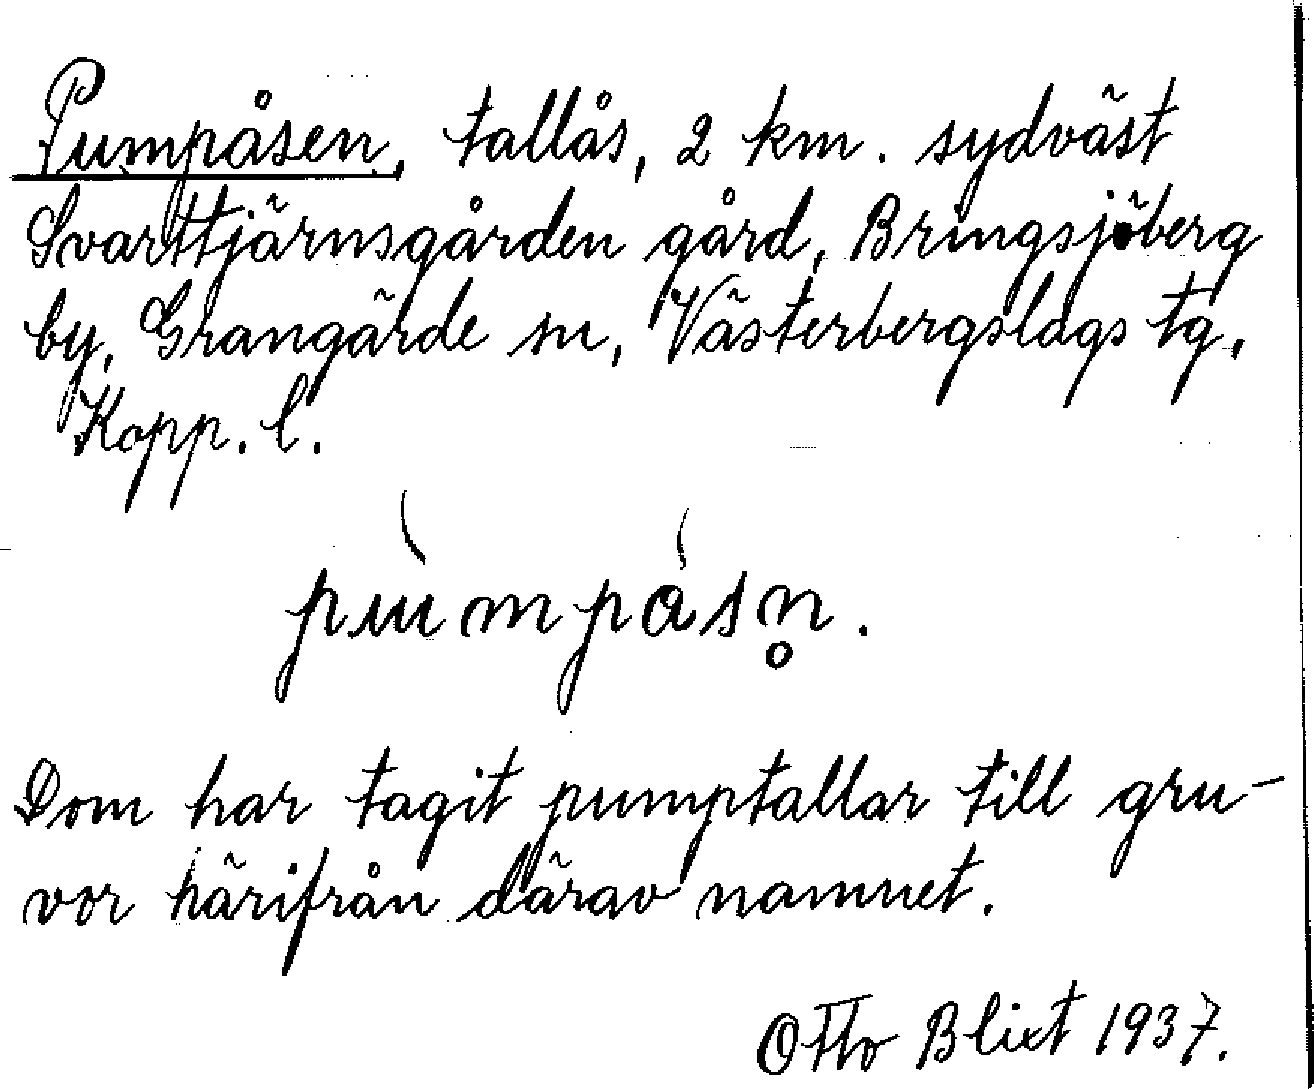 Pumpåsen, tallås, 2 km. sydväst
Svarttjärnsgården gård, Bringsjöberg
by, Grangärde sn, Västerbergslags tg,
Kopp. l.
pùmpåsn̥.
Dom har tagit pumptallar till gru-
vor härifrån därav namnet.
Otto Blixt 1937.